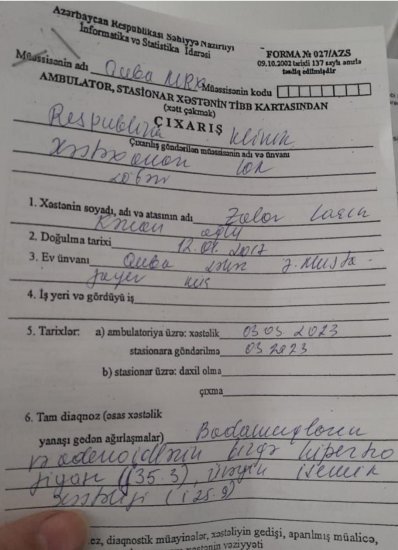 Azərbaycan Respublikası Səhiyyə Nazirliyi
İnformatika və Statistika İdarəsi
FORMA № 027/AZS
09.10.2002 tarixli 137 saylı əmrlə
təsdiq edilmişdir
Müəssisənin adı Quba MRX Müəssisənin kodu
AMBULATOR, STASIONAR XƏSTƏNİN TİBB KARTASINDAN
(xətt çəkmək)
ÇIXARIŞ
Respublika klinik
Çıxarılış göndərilən müəssisənin adı və ünvanı
1. Xəstənin soyadı, adı və atasının adı
oğlu
2. Doğulma tarixi 12.01.2017
3. Ev ünvanı Quba
4. İş yeri və gördüyü iş
5. Tarixlər: a) ambulatoriya üzrə: xəstəlik 03 03 2023
stasionara göndərilmə 03 2023
b) stasionar üzrə: daxil olma
çıxma
6. Tam diaqnoz (əsas xəstəlik
yanaşı gedən ağırlaşmalar) Badamcıqların
və adenoidlərin birgə hipertro
fiyası (J35.3), ürəyin işemik
xəstəliyi (I25.9)
diaqnostik müayinələr, xəstəliyin gedişi, aparılmış müalicə,
vəziyyəti